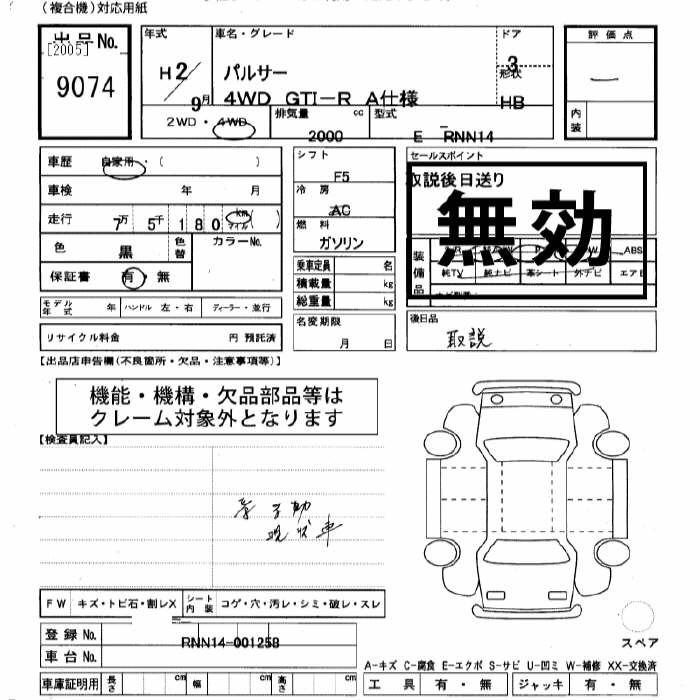 （複合機）対応用紙
出品No.
[2005]
9074
年式
H2/9月
車名・グレード
パルサー
4WD GTI-R A仕様
ドア
3
形状
HB
2WD・4WD
排気量 cc
2000
型式
E RNN14
評価点
内装
車歴 自家用・( )
車検 年 月
走行 7万 5千 180 km マイル ( )
色 黒 色替 カラーNo.
保証書 有・無
シフト
F5
冷房
AC
燃料
ガソリン
乗車定員 名
積載量 kg
総重量 kg
セールスポイント
取説後日送り
無効
装備品
ABS
純TV 純ナビ 革シート 外ナビ エアB
モデル年式 年 ハンドル 左・右 ディーラー・並行
リサイクル料金 円 預託済
名変期限
月 日
後日品
取説
【出品店申告欄（不良箇所・欠品・注意事項等）】
機能・機構・欠品部品等は
クレーム対象外となります
【検査員記入】
現状車
FW キズ・トビ石・割レX シート内装 コゲ・穴・汚レ・シミ・破レ・スレ
登録No.
車台No. RNN14-001258
車庫証明用 長さ cm 幅 cm 高さ cm
スペア
A-キズ C-腐食 E-エクボ S-サビ U-凹ミ W-補修 XX-交換済
工具 有・無 ジャッキ 有・無